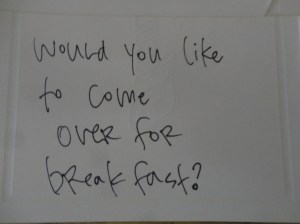 Would you like
to come
over for
breakfast?